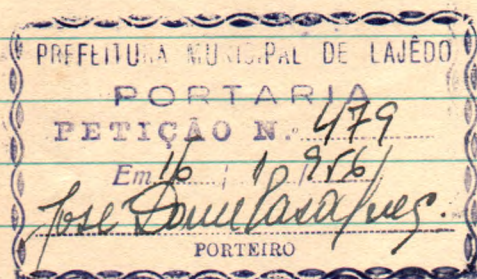 PREFEITURA MUNICIPAL DE LAJÊDO
PORTARIA
PETIÇÃO N.º 479
Em 16 / 1 / 956
José
PORTEIRO